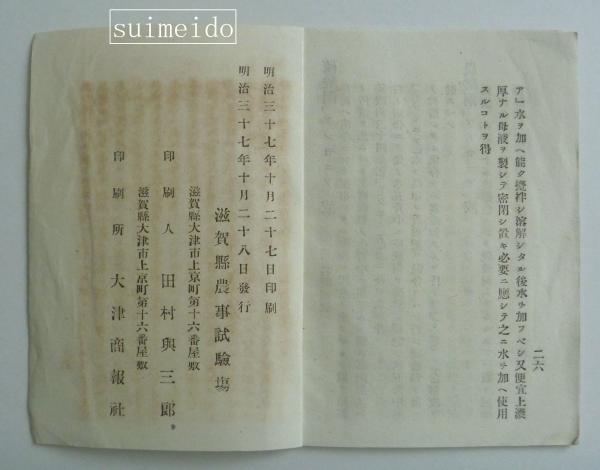 suimeido
二六
アー水ヲ加ヘ能ク攪拌シ溶解シタル後水ヲ加フベシ又便宜上濃
厚ナル母液ヲ製シテ密閉シ置キ必要ニ應シテ之ニ水ヲ加ヘ使用
スルコトヲ得
明治三十七年十月二十七日印刷
明治三十七年十月二十八日發行
滋賀縣農事試驗塲
滋賀縣大津市上京町第十六番屋敷
印刷人 田村與三郎
滋賀縣大津市上京町第十六番屋敷
印刷所 大津商報社